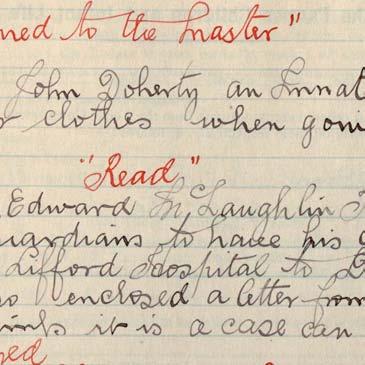 ned to the Master"
John Doherty an Inmat
clothes when goin
"Read"
Edward McLaughlin
uardians to have his
Lifford Hospital to
enclosed a letter from
inks it is a case can
ed